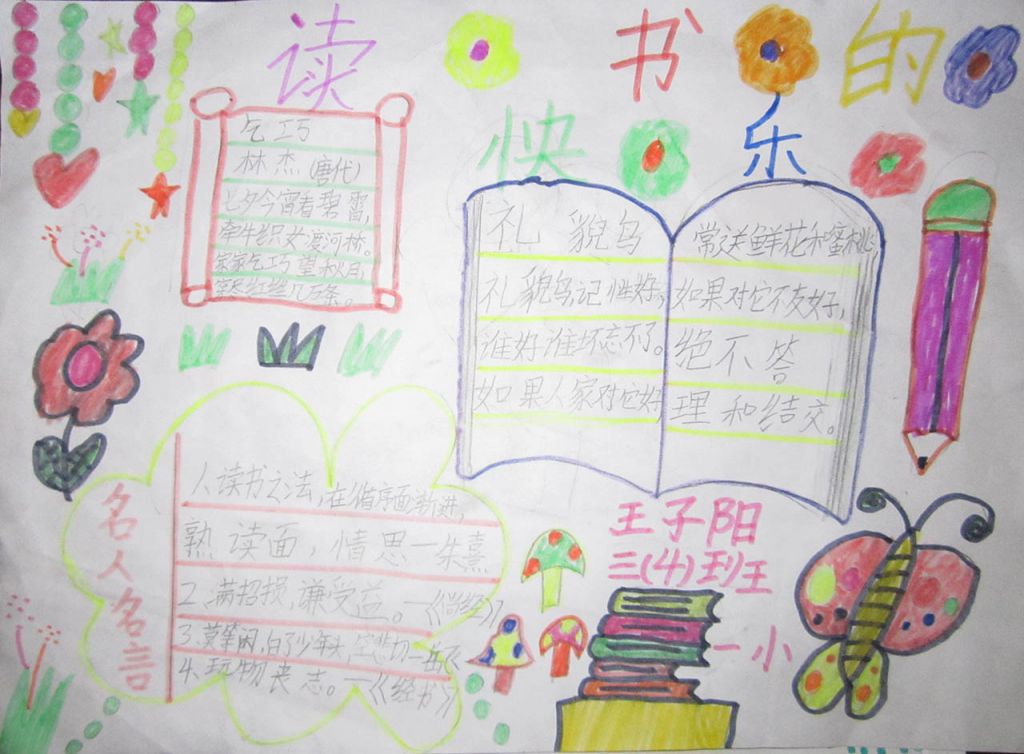 读书的
快乐
乞巧
林杰(唐代)
七夕今宵看碧霄,
牵牛织女渡河桥。
家家乞巧望秋月,
红丝几万条。
礼貌鸟
礼貌鸟记性好,
谁好谁坏忘不了。
如果人家对它好
常送鲜花和蜜桃
如果对它不友好,
绝不答
理和结交。
名人名言
1、读书之法,在循序而渐进,
熟读而,情思一朱熹
2、满招损,谦受益。一《尚经》
3、莫等闲,白了少年头,空悲切一岳飞
4、玩物丧志。一《经书》
王子阳
三(4)班
一小